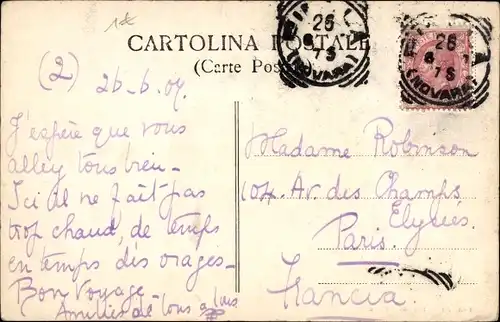 1 st
CARTOLINA POSTALE
(Carte Pos
26
6 7
7 S
(NOVARA)
26
6 7
7 S
(NOVARA)
(2) 26-6.07.
J'espère que vous
allez tous bien -
Ici il ne fait pas
trop chaud, de temps
en temps des orages -
Bon Voyage -
Amitiés de tous
Madame Robinson
104 Av. des Champs
Elysées
Paris
Francia